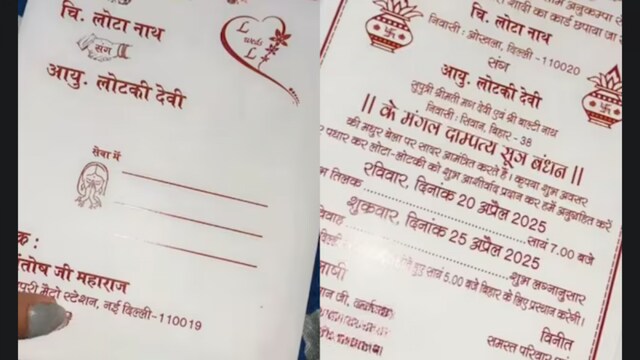 चि. लोटा नाथ
संग
आयु. लोटकी देवी
L
weds
L
सेवा में
क :
तोष जी महाराज
पुरी मेट्रो स्टेशन, नई दिल्ली-110019
शादी का कार्ड छपवाया जा
चि. लोटा नाथ
निवासी : ओखला, दिल्ली -110020
संग
आयु. लोटकी देवी
सुपुत्री श्रीमती मग देवी एवं श्री बाल्टी नाथ
निवासी : सिवान, बिहार -36
|| के मंगल दाम्पत्य सूत्र बंधन ||
की मधुर बेला पर सादर आमंत्रित करते है। कृपया शुभ अवसर
पधार कर लोटा-लोटकी को शुभ आशीर्वाद प्रदान कर हमें अनुग्रहित करें
रविवार, दिनांक 20 अप्रैल 2025
तिलक सायं 7.00 बजे
शुक्रवार, दिनांक 25 अप्रैल 2025
विवाह शुभ लग्नानुसार
सायं 5.00 बजे बिहार के लिए प्रस्थान करेगी।
विनीत
समस्त परिवार